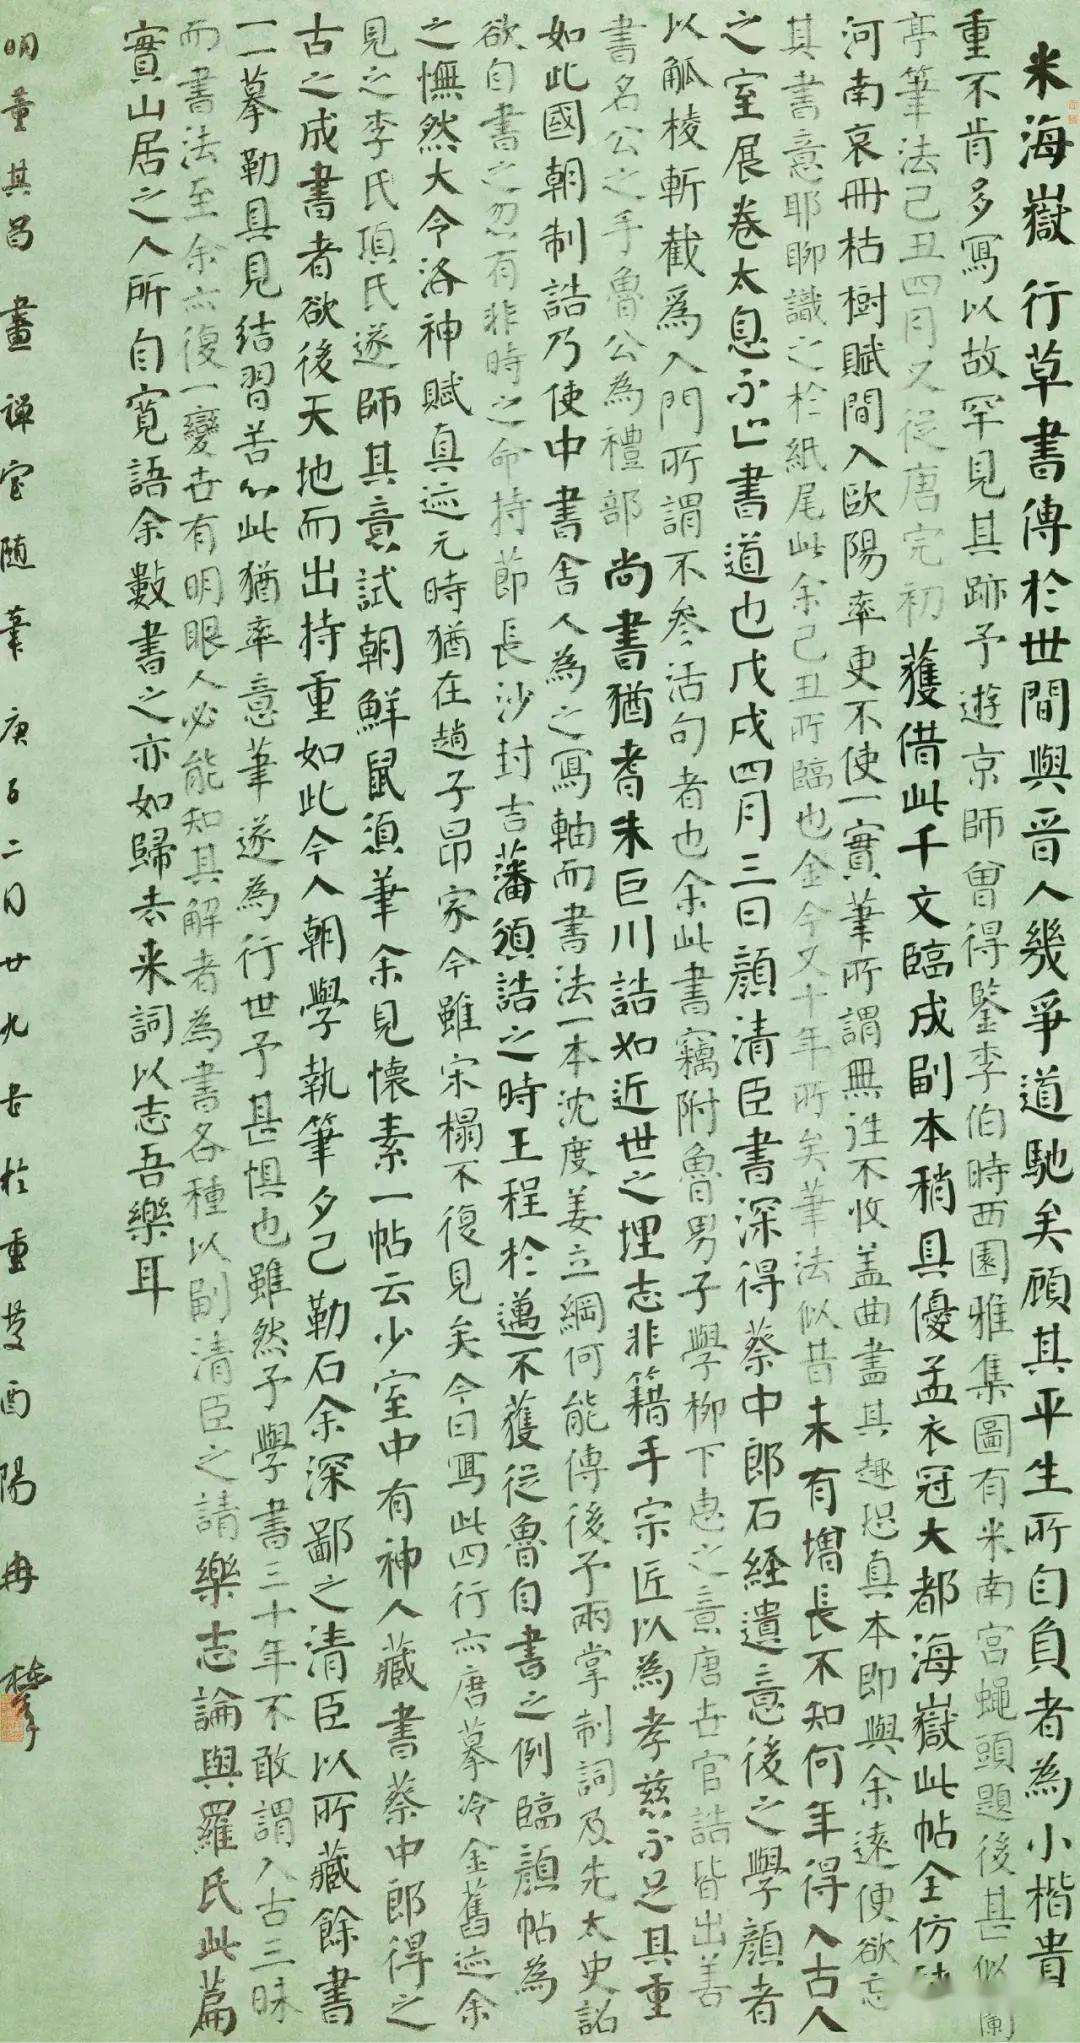 米海嶽行草書傳於世間與晉人幾爭道馳矣顧其平生所自負者為小楷貴
重不肯多寫以故罕見其跡予遊京師曾得鑒李伯時西園雅集圖有米南宮蠅頭題後甚似蘭
亭筆法己丑四月又從唐完初獲借此千文臨成副本稍具優孟衣冠大都海嶽此帖全仿褚
河南哀冊枯樹賦間入歐陽率更不使一實筆所謂無往不收蓋曲盡其趣恐真本即與余遠便欲忘
其書意耶聊識之於紙尾此余己丑所臨也金今又十年所矣筆法似昔未有增長不知何年得入古人
之室展卷太息不止書道也戊戌四月三日顏清臣書深得蔡中郎石經遺意後之學顏者
以觚棱斬截為入門所謂不參活句者也余此書竊附魯男子學柳下惠之意唐世官誥皆出善
書名公之手魯公為禮部尚書猶書朱巨川誥如近世之埋志非籍手宗匠以為孝慈不足其重
如此國朝制誥乃使中書舍人為之寫軸而書法一本沈度姜立綱何能傳後予兩掌制詞及先太史誥
欲自書之忽有非時之命持節長沙封吉藩頒誥之時王程於邁不獲從魯自書之例臨顏帖為
之憮然大令洛神賦真迹元時猶在趙子昂家今雖宋榻不復見矣今日寫此四行亦唐摹冷金舊迹余
見之李氏項氏遂師其意試朝鮮鼠須筆余見懷素一帖云少室中有神人藏書蔡中郎得之
古之成書者欲後天地而出持重如此今人朝學執筆夕己勒石余深鄙之清臣以所藏餘書
一一摹勒具見結習苦心此猶率意筆遂為行世予甚懼也雖然予學書三十年不敢謂入古三昧
而書法至余亦復一變世有明眼人必能知其解者為書各種以副清臣之請樂志論與羅氏此篇
實山居之人所自寬語余數書之亦如歸去來詞以志吾樂耳
明董其昌畫禪室隨筆庚子二月廿九吉於重慶酉陽冉